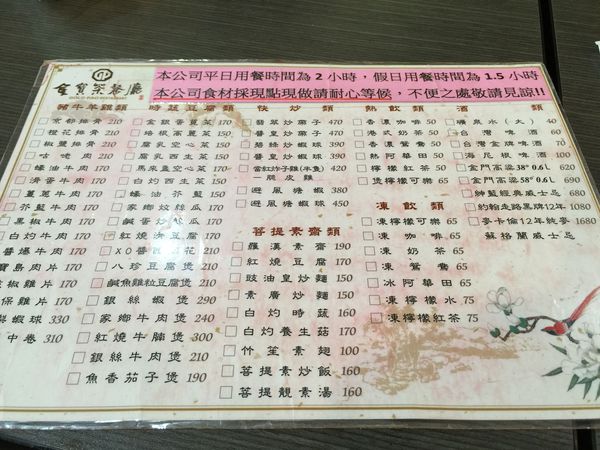 食寶菜餐廳
本公司平日用餐時間為2小時，假日用餐時間為1.5小時
本公司食材採現點現做請耐心等候，不便之處敬請見諒!!
豬牛羊雞類
京都排骨 170
橙花排骨 170
椒鹽排骨 170
咕咾肉 170
蠔油牛肉 170
滑蛋牛肉 170
薑蔥牛肉 170
芥藍牛肉 170
黑椒牛肉 170
白灼牛肉 170
醬爆牛肉 170
寶島肉片 170
椒雞片 170
保雞片 170
蝦球 330
中卷 310
時蔬豆腐類
金銀蛋莧菜 150
培根高麗菜 150
腐乳空心菜 150
腐乳西生菜 150
馬來盞空心菜 150
白灼西生菜 150
蠔油芥藍 150
家鄉炆絲瓜 170
鹹蛋炒苦瓜 170
紅燒油豆腐 170
XO醬 花 210
八珍豆腐煲 210
鹹魚雞粒豆腐煲 210
銀絲蝦煲 290
家鄉牛肉煲 240
紅燒牛腩煲 300
銀絲牛肉煲 210
魚香茄子煲 190
快炒類
翡翠炒帶子 470
醬皇炒帶子 470
碧綠炒蝦球 390
醬皇炒蝦球 390
當紅炸子雞(半隻) 390
脆皮雞
避風塘蝦 380
避風塘蝦球 450
菩提素齋類
羅漢素齋 190
紅燒豆腐 170
豉油皇炒麵 150
素廣炒麵 150
白灼時蔬 160
白灼養生菇 170
竹笙素翅 100
菩提素炒飯 160
菩提靚素湯 160
熱飲類
香濃咖啡 50
港式奶茶 50
香濃鴛鴦 50
熱阿華田 50
檸檬紅茶 50
煲檸檬可樂 65
凍飲類
凍檸檬可樂 65
凍咖啡 65
凍奶茶 65
凍鴛鴦 65
冰阿華田 65
凍檸檬水 75
凍檸檬紅茶 75
酒類
礦泉水(大) 40
台灣啤酒 60
台灣金牌啤酒 70
海尼根啤酒 100
金門高粱38°0.6L 620
金門高粱58°0.6L 690
紳藍經典威士忌 780
約翰走路黑牌12年 1080
麥卡倫12年純麥 1680
蘇格蘭威士忌